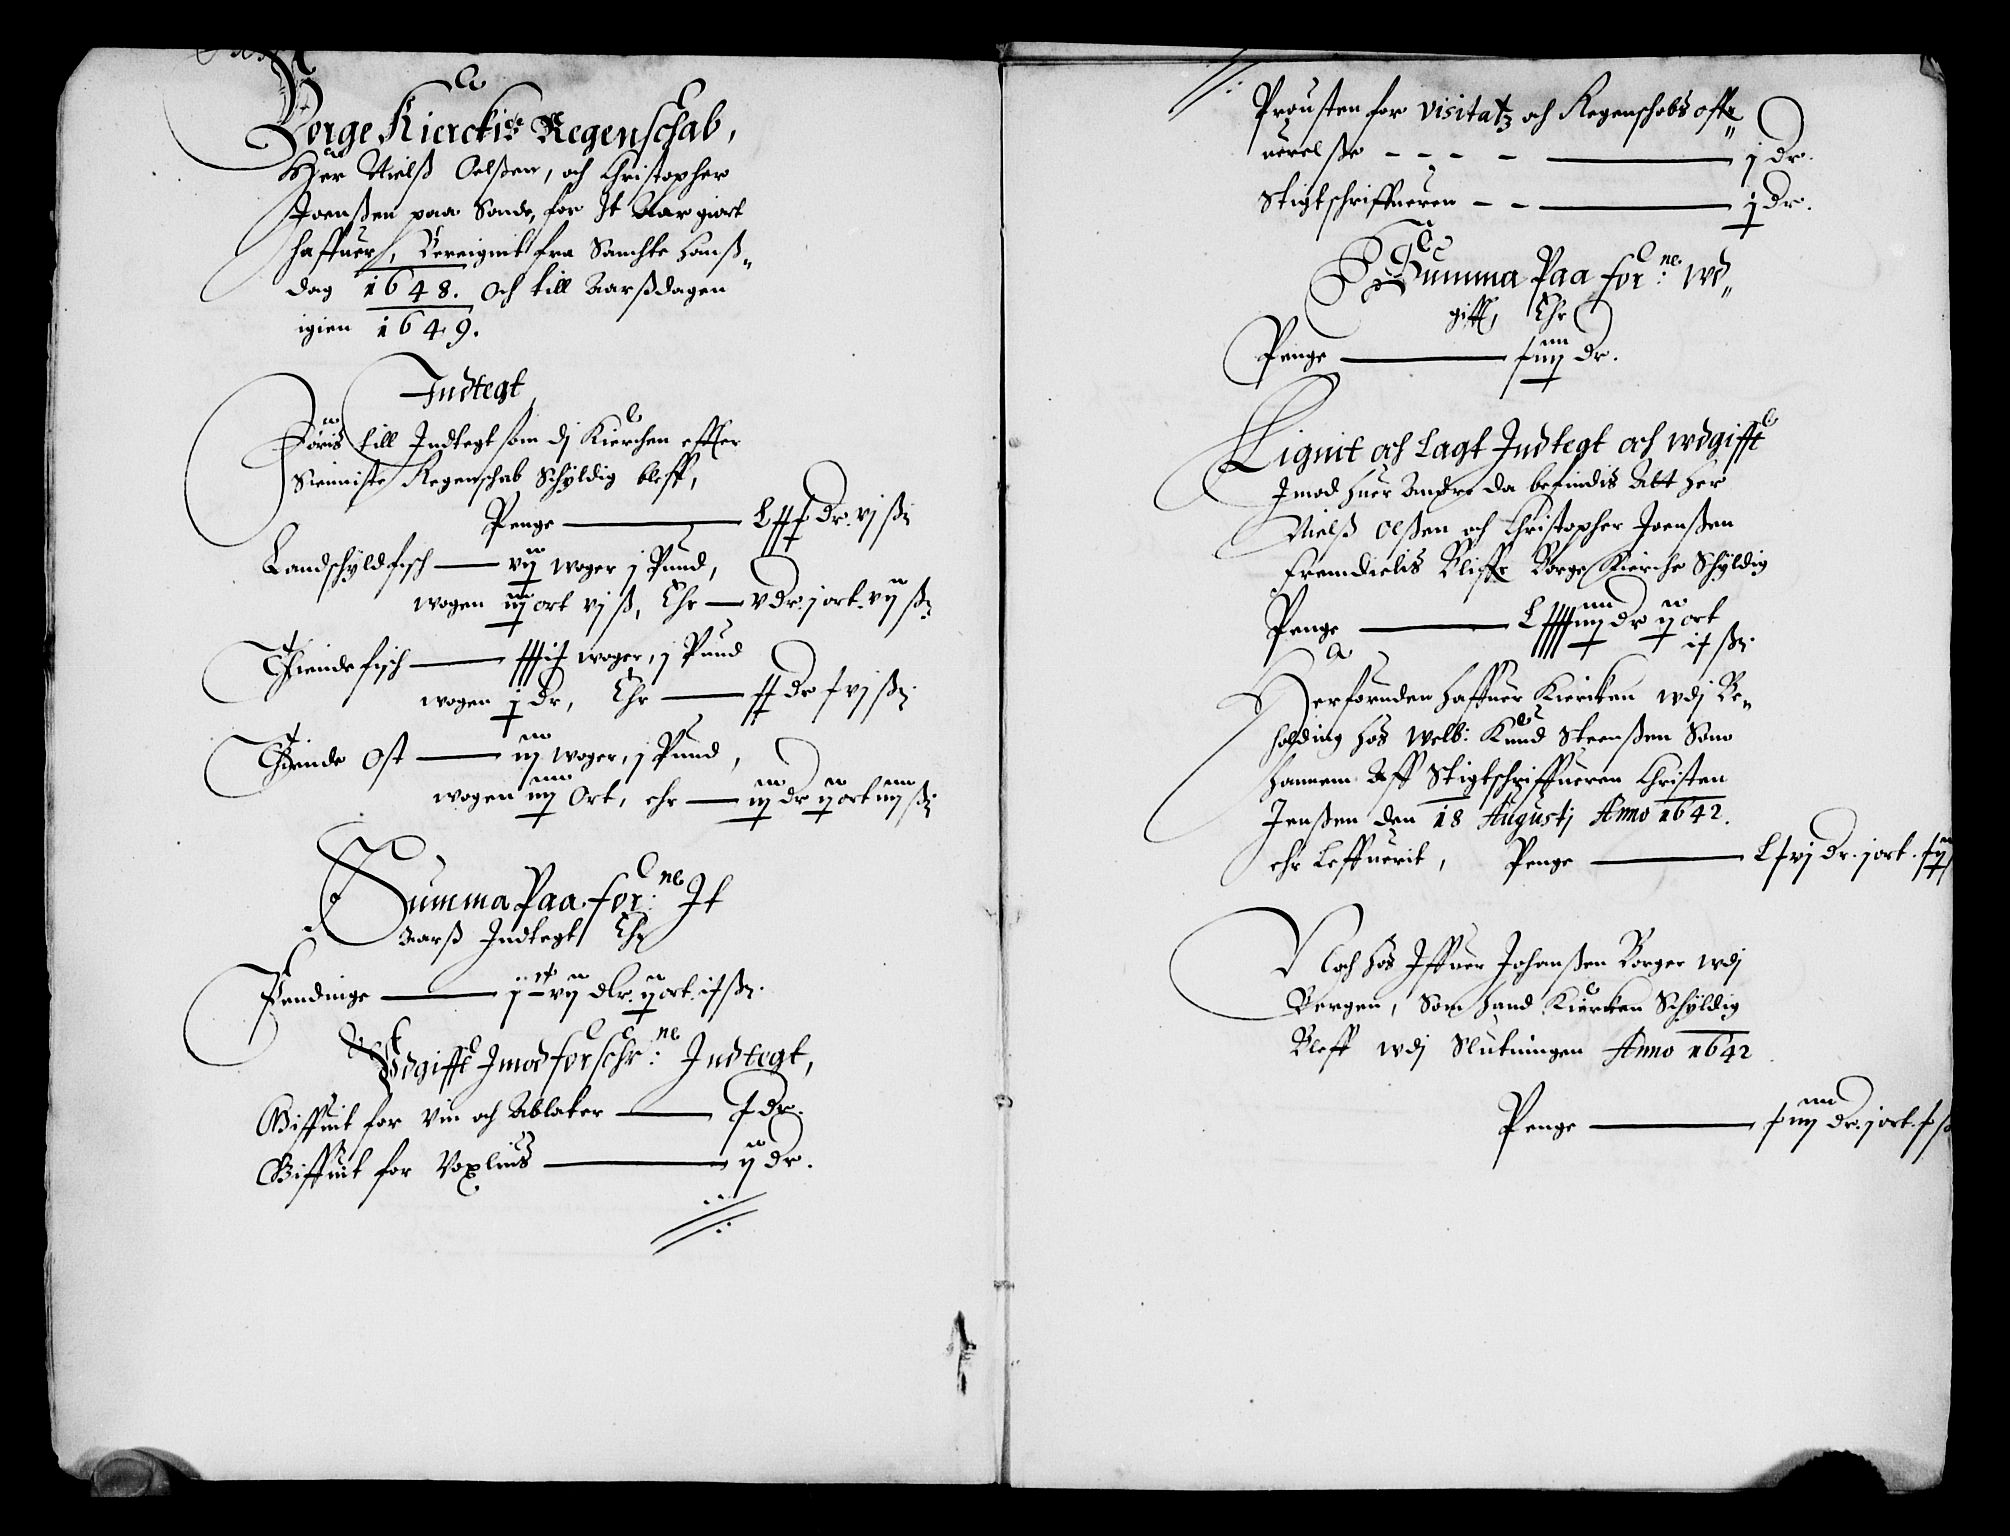 Borge Kierckis Regenschab,
Her Nielß Oelßen, och Christopher
Joenßen paa Sande, for It Aar giort
haffuer, Bereignit fra Sancte Hanß„
dag 1648. och till Aarßdagen
igien 1649.
Indtegt
Føris till Indtegt som dj Kierchen effter
Sienniste Regenschab Schyldig bleff,
Penge — Lxxx dr. vj ß;
Landschyldfisch — vij woger j Pund,
wogen iij ort vj ß, Ehr — v dr. j ort. vij ß;
Thiendefisch — xxxix woger, j Pund
wogen j dr, Ehr — xx dr xvj ß;
Thiende Ost — iij woger, j Pund,
wogen iiij Ort, ehr — iij dr ij ort iiij ß;
Summa Paa for:ne It
Aarß Indtegt Ehr
Pendinge — j c vij dlr. ij ort. ix ß;
Wdgifft Imod forschr:ne Indtegt,
Giffuit for Vin och Ablater — x dr.
Giffuit for Voxlius — ij dr.
Prousten for Visitatz och Regenschabs offr„
uerelsße — j dr.
Stigtschriffueren — j dr.
Summa Paa for:ne Wd„
gifft, Ehr
Penge — xiiij dr.
Lignit och Lagt Indtegt och wdgifft
Imod huer Andre da befindis Att Her
Nielß Olßen och Christopher Joenßen
fremdielis Bliffr Borge Kierche Schyldig
Penge — Lxxxxiij dr ij ort
ix ß;
Herforuden haffuer Kiercken wdj Be„
holding hos Welb: Knud Steenßen Som
hannem Aff Stigtschriffueren Christen
Jenßen den 18 Augustj Anno 1642.
ehr Leffuerit, Penge — Lxvj dr. j ort. xij
Noch hos Iffuer Johanßen Borger wdj
Bergen, Som hand Kiercken Schyldig
Bleff wdj Slutningen Anno 1642
Penge — xiiij dr. j ort. x ß